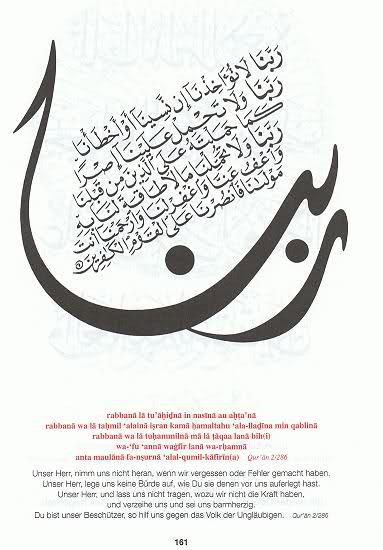 ربنا
رَبَّنَا لَا تُؤَاخِذْنَا إِن نَّسِينَا أَوْ أَخْطَأْنَا
رَبَّنَا وَلَا تَحْمِلْ عَلَيْنَا إِصْرًا
كَمَا حَمَلْتَهُ عَلَى الَّذِينَ مِن قَبْلِنَا
رَبَّنَا وَلَا تُحَمِّلْنَا مَا لَا طَاقَةَ لَنَا بِهِ
وَاعْفُ عَنَّا وَاغْفِرْ لَنَا وَارْحَمْنَا أَنتَ
مَوْلَانَا فَانصُرْنَا عَلَى الْقَوْمِ الْكَافِرِينَ
rabbanā lā tu'āḫiḏnā in nasīnā au aḫṭa'nā
rabbanā wa lā taḥmil 'alainā iṣran kamā ḥamaltahu 'ala-llaḏīna min qablinā
rabbanā wa lā tuḥammilnā mā lā ṭāqaa lanā bih(i)
wa-'fu 'annā waġfir lanā wa-rḥamnā
anta maulānā fa-nṣurnā 'alal-qumil-kāfirīn(a) Qur'ān 2/286
Unser Herr, nimm uns nicht heran, wenn wir vergessen oder Fehler gemacht haben.
Unser Herr, lege uns keine Bürde auf, wie Du sie denen vor uns auferlegt hast.
Unser Herr, und lass uns nicht tragen, wozu wir nicht die Kraft haben,
und verzeihe uns und sei uns barmherzig.
Du bist unser Beschützer, so hilf uns gegen das Volk der Ungläubigen. Qur'ān 2/286
161